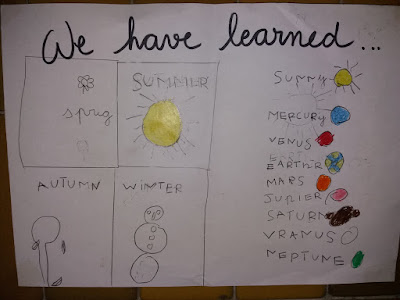 We have learned...
sprug
SUMMER
AUTUMN
WINTER
SUNNY
MERCURY
VENUS
EARTH
MARS
JUPIER
SATURN
VRANUS
NEPTUNE